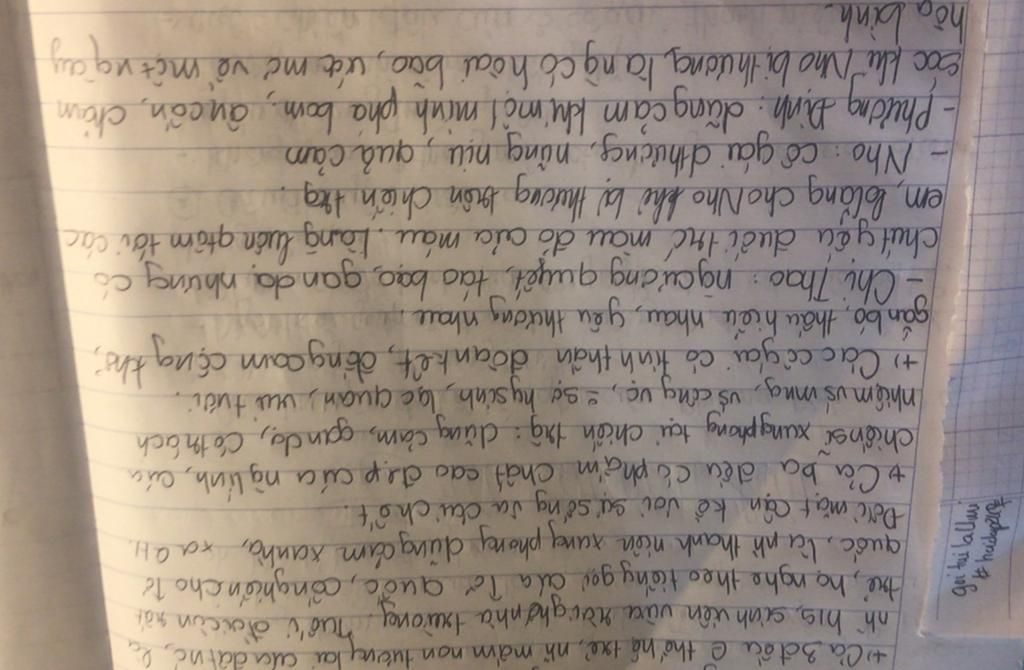 +) Cả 3 đều thế hệ trẻ, nh~ mầm non tương lai của đất nc, là
nh~ hs, sinh viên vừa rời ghế nhà trường. Tuổi đời còn rất
trẻ, họ nghe theo tiếng gọi của Tổ quốc, cống hiến cho Tổ
quốc, là nh~ thanh niên xung phong dũng cảm xa nhà, xa
Đối mặt cận kề với sự sống và cái chết.
+ Cả ba đều có phẩm chất cao đẹp của ng lính, của
chiến sĩ xung phong tại chiến trg: dũng cảm, gan dạ, có trách
nhiệm vs mng, vs công vc, = sợ hy sinh, lạc quan, vui tươi.
+) Các cô gái có tinh thần đoàn kết, đồng cam cộng khổ,
gắn bó, thấu hiểu nhau, yêu thương nhau.
- Chị Thao: cương quyết, táo bạo, gan dạ nhưng có
chút yếu đuối trc màu đỏ của máu. Lòng luôn qtâm tới các
em, lo lắng cho Nho khi bị thương trên chiến trg.
- Nho: cô gái dthương, nũng nịu, quả cảm
- Phương Định: dũng cảm khi một mình phá bom, ân cần, chăm
sóc khi Nho bị thương, là ng có hoài bão, ước mơ về một ngày
hòa bình.
gọi tui là